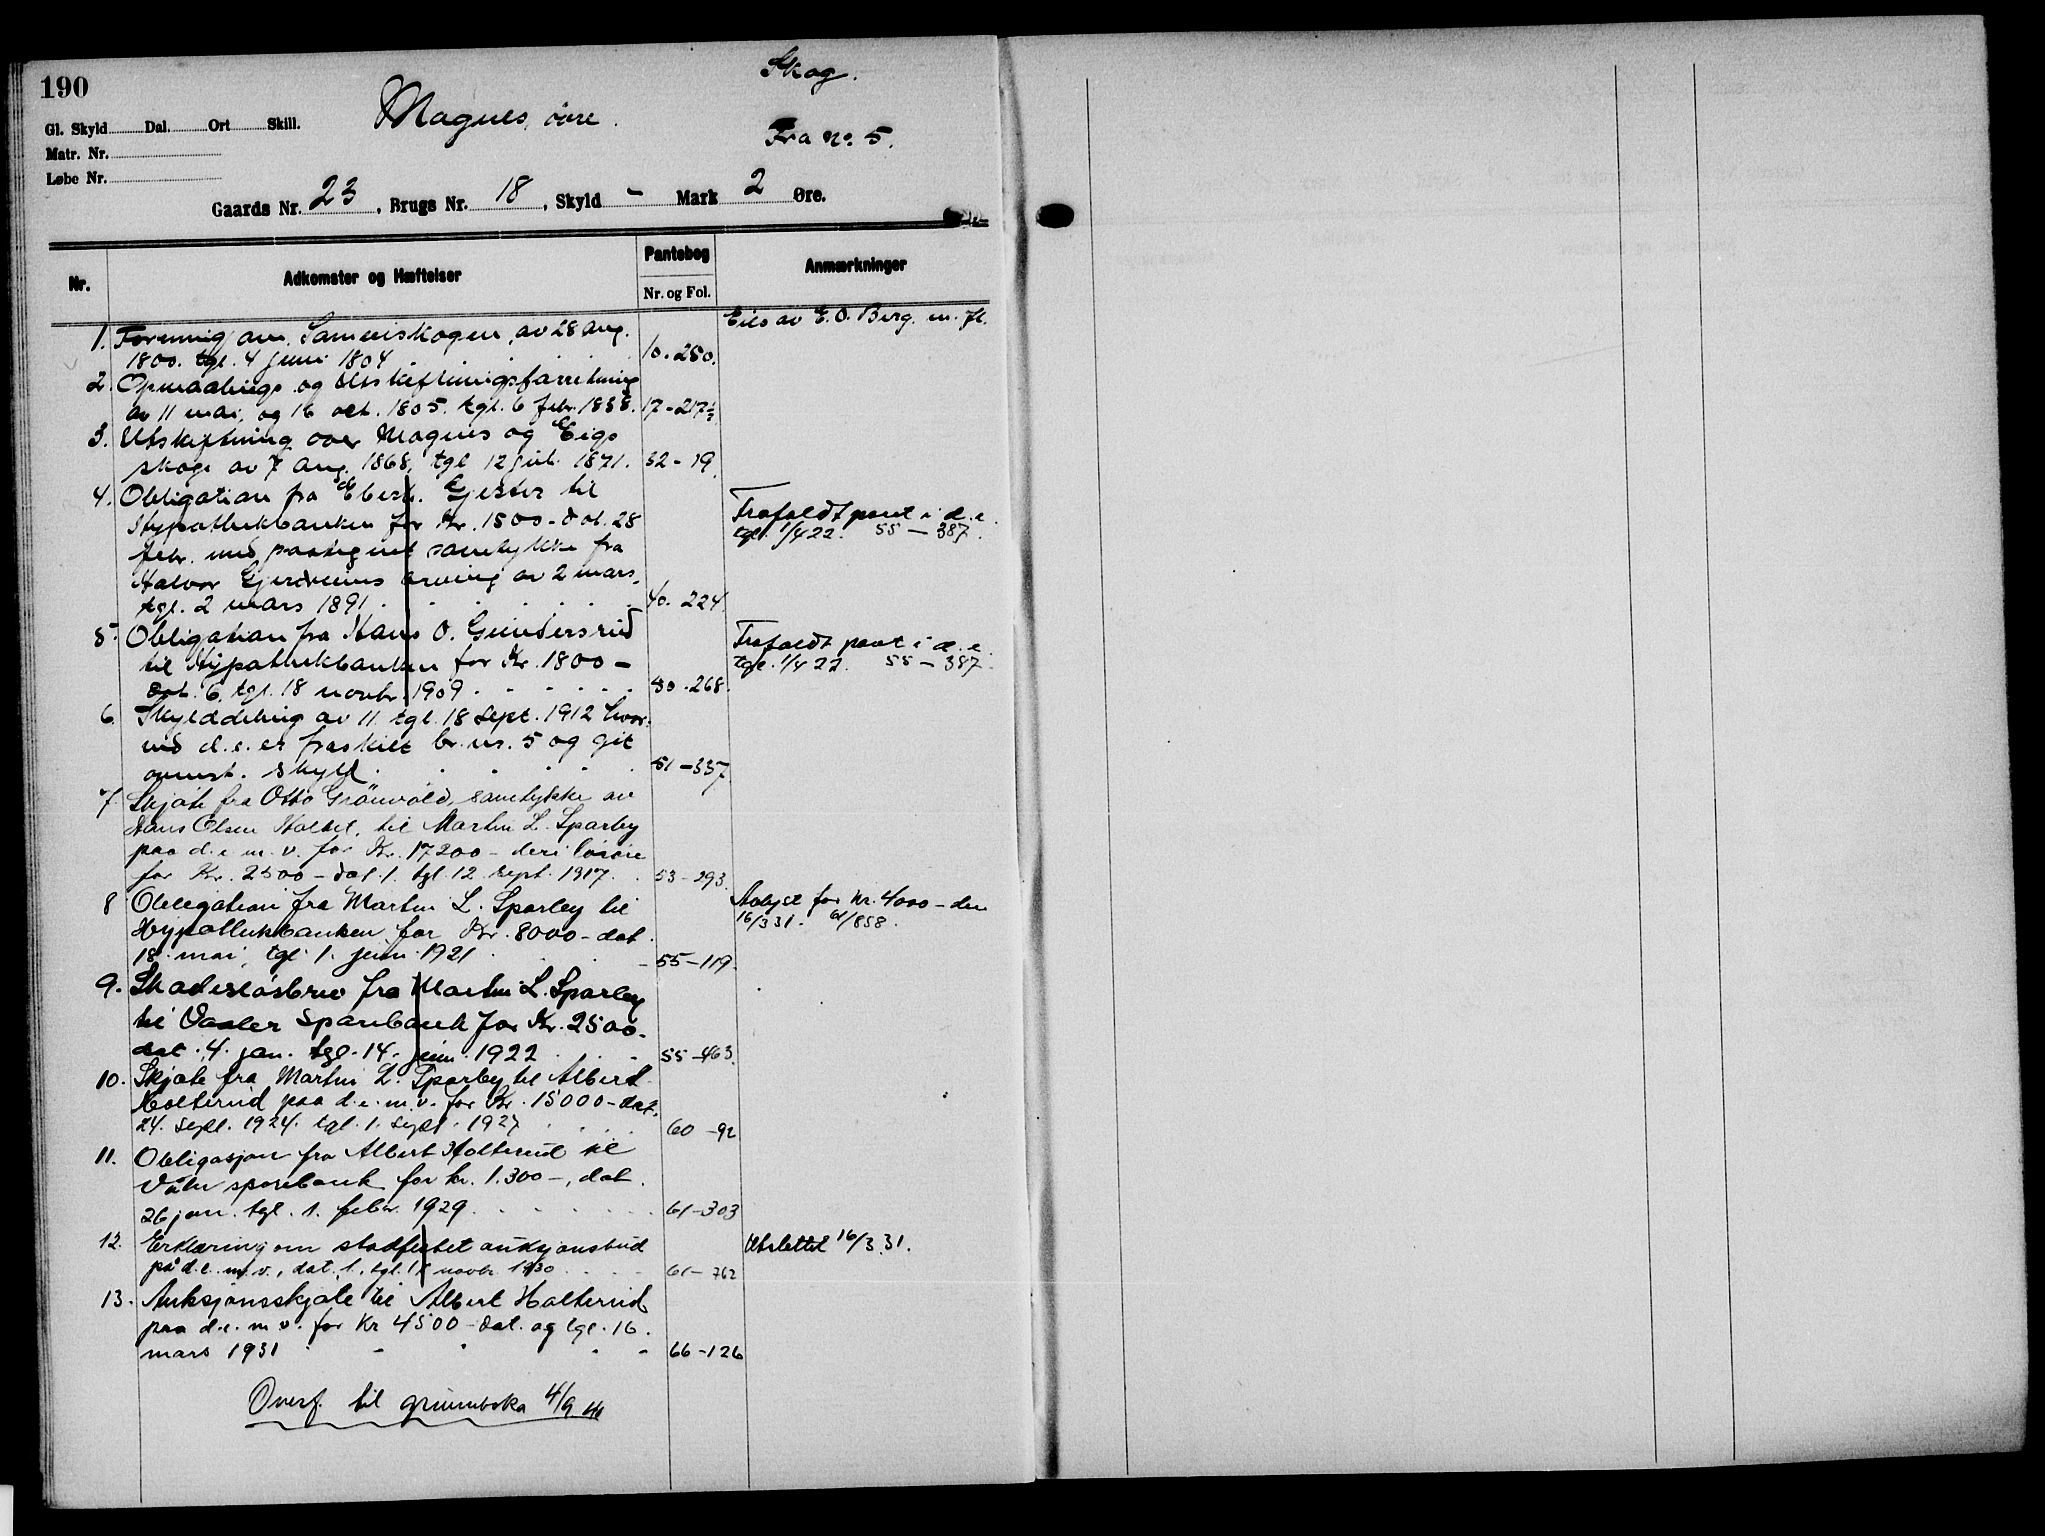 190
Skog.
Gl. Skyld Dal. Ort Skill.
Magnes, övre.
Matr. Nr.
Fra No. 5.
Løbe Nr.
Gaards Nr. 23, Brugs Nr. 18, Skyld - Mark 2 Øre.
Nr. Adkomster og Hæftelser Pantebog Anmærkninger
Nr. og Fol.
Eies av E. O. Berg. m. fl.
1. Forening om Sameiskogen, av 28 aug.
1800. tgl. 4 juni 1804. 10-250.
2. Opmaalings og Utskiftningsforretning
av 11 mai, og 16 okt. 1805. tgl. 6 febr. 1838. 17-217½
3. Utskiftning over Magnes og Eigs
skoge av 7 aug. 1868, tgl 12 juli 1871. 32-19
4. Obligation fra Ebert. Gjester til
Hypothekbanken for Kr. 1500 - dat. 28
febr. med paategnet samtykke fra
Halvor Gjerdrums arving av 2 mars,
tgl. 2 mars 1891. 40-224.
Frafaldt pant i d. e.
tgl. 1/4 22. 55-387.
5. Obligation fra Hans O. Gundersrud
til Hypothekbanken for Kr. 1800 -
dat. 6. tgl. 18 novbr. 1909. 50-268.
Frafaldt pant i d. e.
tgl. 1/4 22. 55-387.
6. Skylddeling av 11. tgl. 18 sept. 1912 hvor-
ved d. e. er fraskilt br. nr. 5 og git
ovenst. skyld. 51-337
7. Skjøte fra Otto Grönvold, samtykke av
Hans Olsen Holtet, til Martin L. Sparby
paa d. e. m. v. for Kr. 17200 - deri løsøre
for Kr. 2500 - dat. 1. tgl. 12 sept. 1917. 53-293.
8 Obligation fra Martin L. Sparby til
Hypothekbanken for Kr. 8000 - dat.
18. mai, tgl. 1. juni 1921. 55-119.
Avlyst for kr. 4000 - den
16/3 31. 61/858.
9. Skadesløsbrev fra Martin L. Sparby
til Vaaler Sparebank for Kr. 2500 -
dat. 4. jan. tgl. 14. juni 1922 55-463.
10. Skjøte fra Martin L. Sparby til Albert
Holterud paa d. e. m. v. for Kr. 15000 - dat.
24. sept. 1924. tgl. 1. sept. 1927 60-92
11. Obligasjon fra Albert Holterud til
Våler sparebank for kr. 1.300 -, dat.
26 jan. tgl. 1. febr. 1929. 61-303
12. Erklæring om stadfestet auksjonsbud
på d. e. m. v., dat. 1., tgl. 18 novbr. 1930 61-762
Utslettet 16/3 31.
13. Auksjonsskjøte til Albert Holterud
paa d. e. m. v. for Kr 4500 - dat. og tgl. 16.
mars 1931 66-126
Overf. til grunnboka 4/9 44